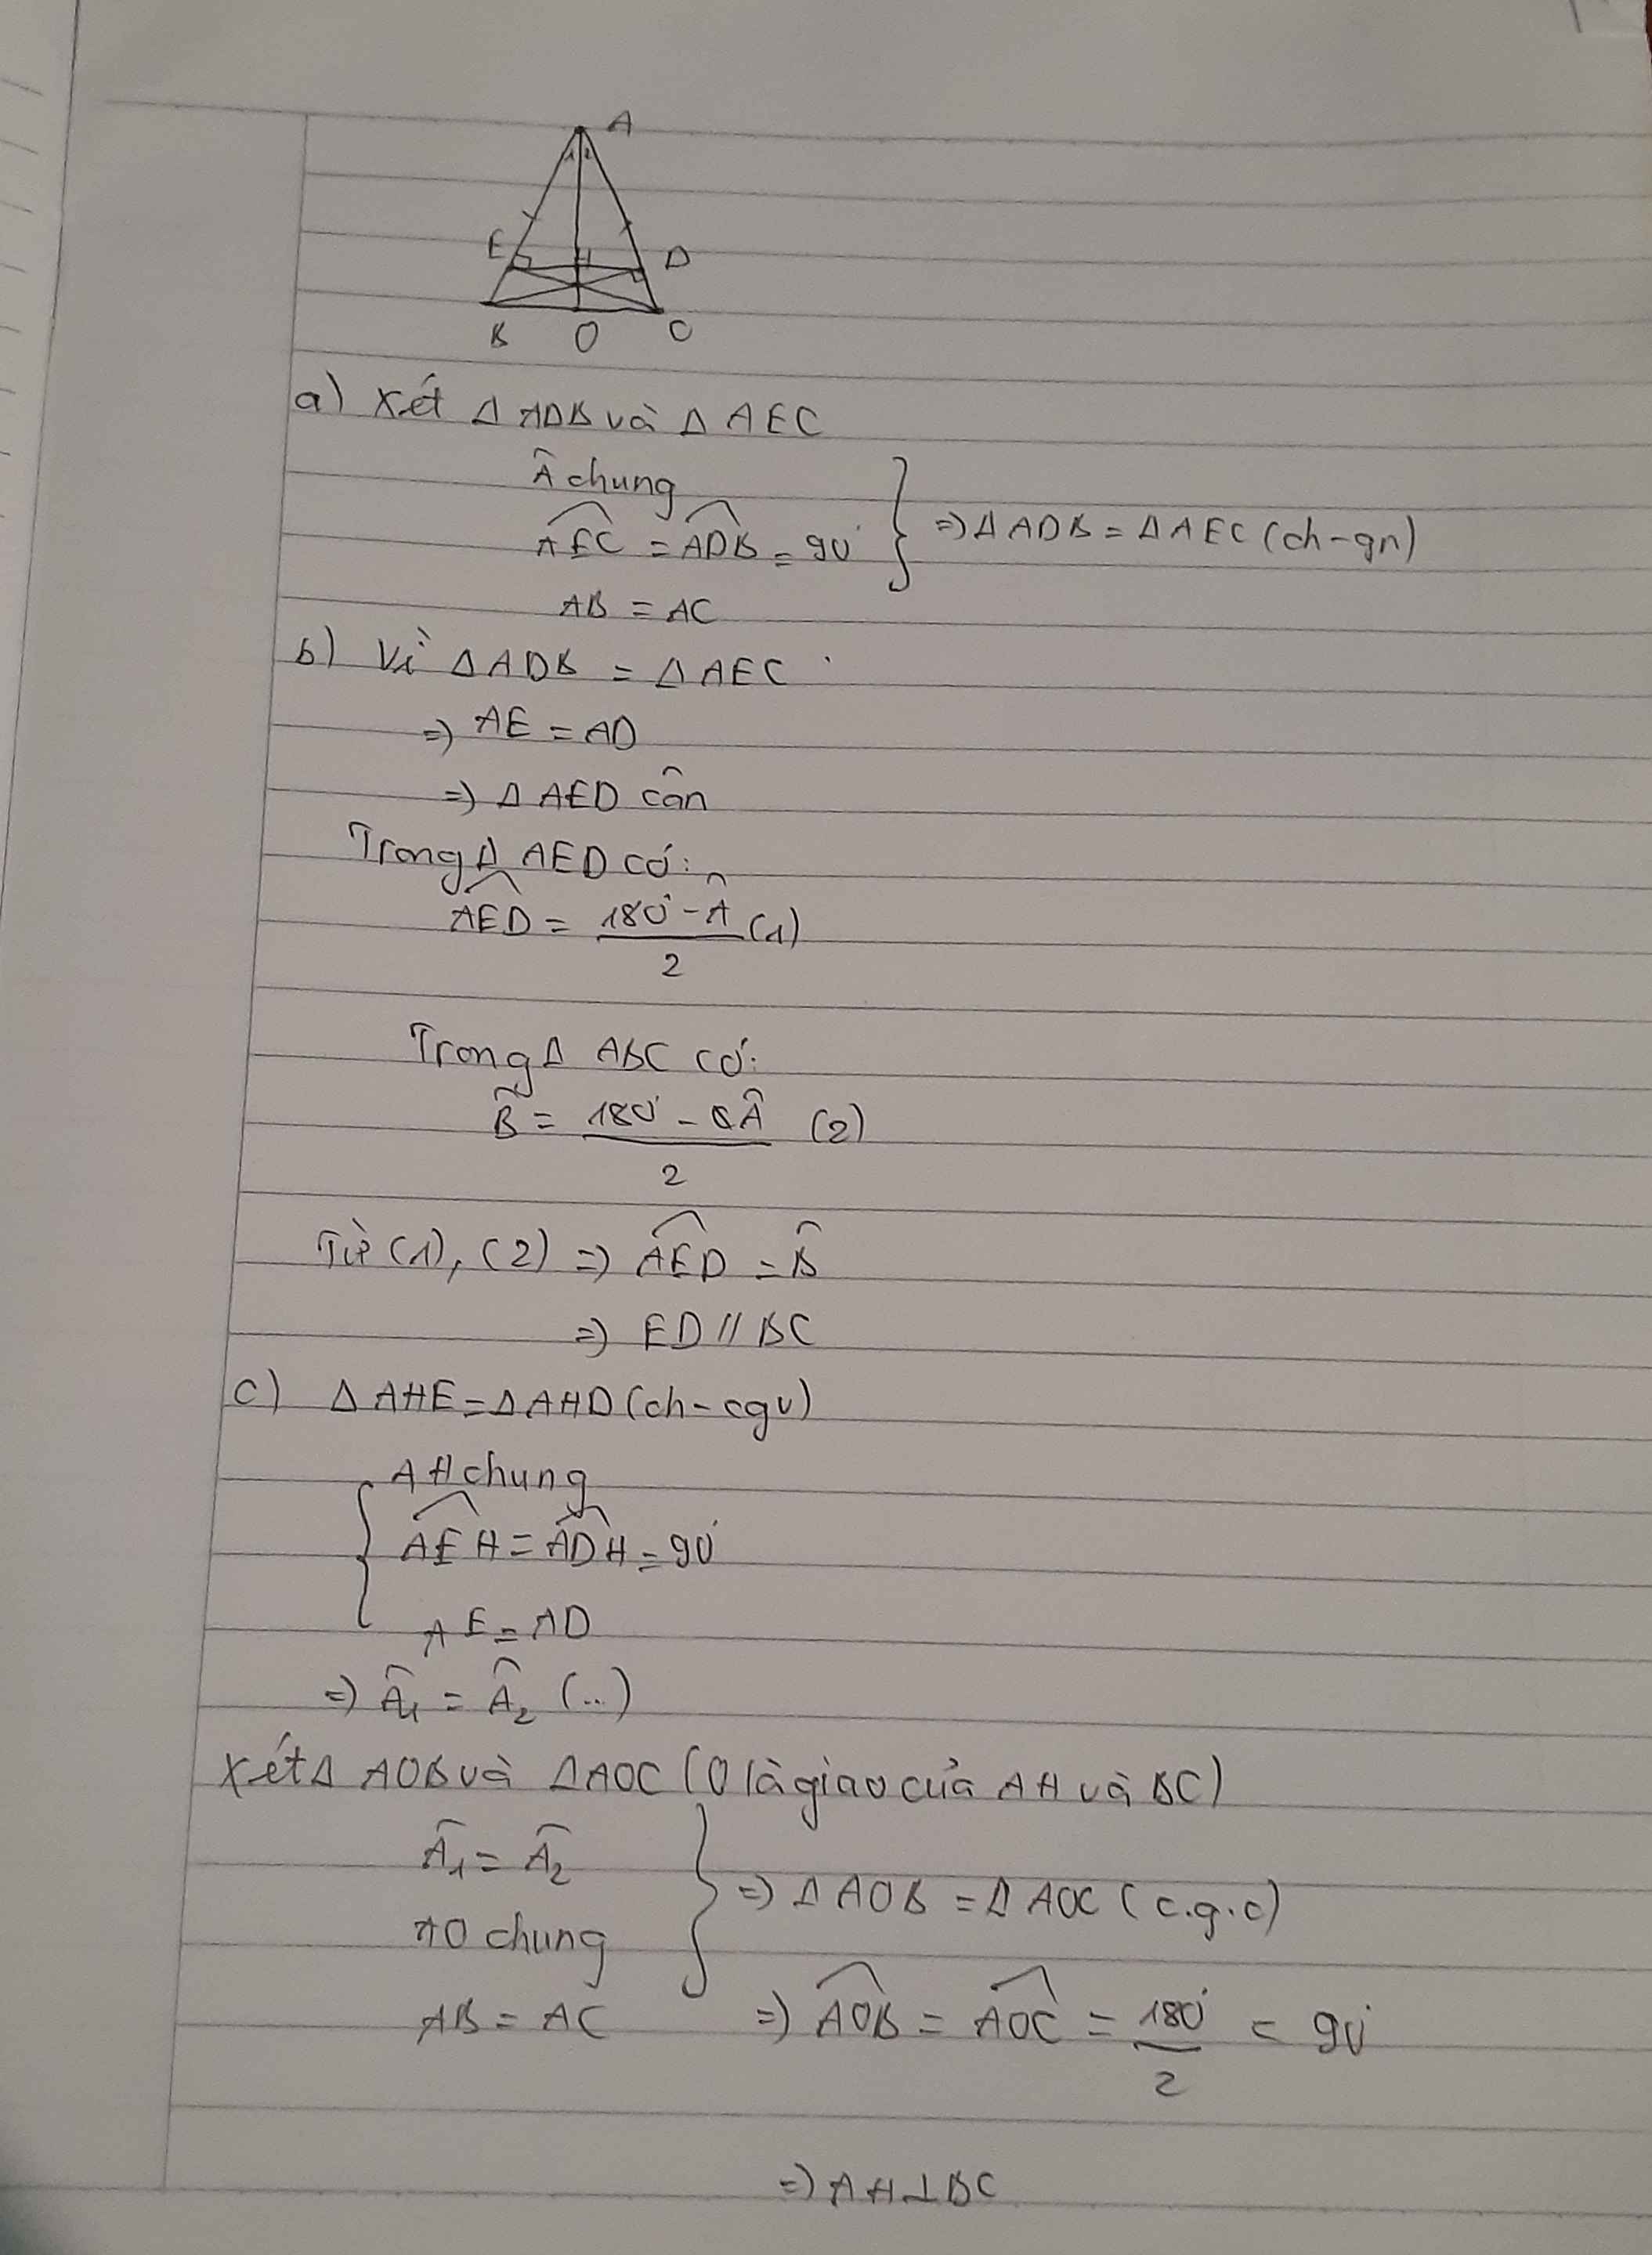 A
1 2
E H D
B O C
a) Xét Δ ADB và Δ AEC
Â chung
AEC = ADB = 90° } => Δ ADB = Δ AEC (ch-gn)
AB = AC
b) Vì Δ ADB = Δ AEC
=> AE = AD
=> Δ AED cân
Trong Δ AED có:
AED = 180° - Â (1)
2
Trong Δ ABC có:
B̂ = 180° - Â (2)
2
Từ (1), (2) => AED = B̂
=> ED // BC
c) Δ AHE = Δ AHD (ch-cgv)
AH chung
AEH = ADH = 90°
AE = AD
=> Â1 = Â2 (...)
Xét Δ AOB và Δ AOC (O là giao của AH và BC)
Â1 = Â2
AO chung } => Δ AOB = Δ AOC (c.g.c)
AB = AC => AOB = AOC = 180° = 90°
2
=> AH ⊥ BC